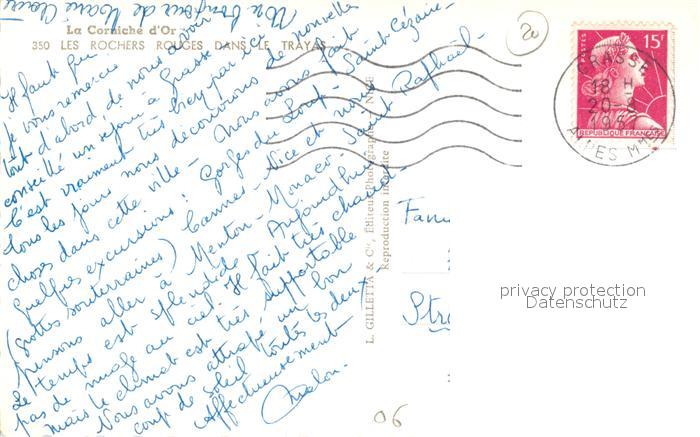 La Corniche d'Or
350 LES ROCHERS ROUGES DANS LE TRAYAS
Il faut
je vous remercie
tout d'abord de nous avoir
conseillé un séjour à Grasse
C'est vraiment très bien par ici
tous les jours nous découvrons de nouvelles
choses dans cette ville. Nous avons fait
quelques excursions : Gorges du Loup - Saint-Cézaire
(grottes souterraines) Cannes - Nice et nous
pensons aller à Menton - Monaco - Saint Raphael -
Le temps est splendide. Aujourd'hui
pas de nuage au ciel. Il fait très chaud
mais le climat est très supportable
Nous avons attrapé un bon
coup de soleil toutes les deux
Affectueusement
bonjour de Marie Claire
L. GILLETTA & Cie, Éditeur-Photographe, NICE
Reproduction interdite
20
POSTES
15F
REPUBLIQUE FRANÇAISE
GRASSE
18 H
20-8
195
ALPES MMES
Fam
Str
privacy protection
Datenschutz
06